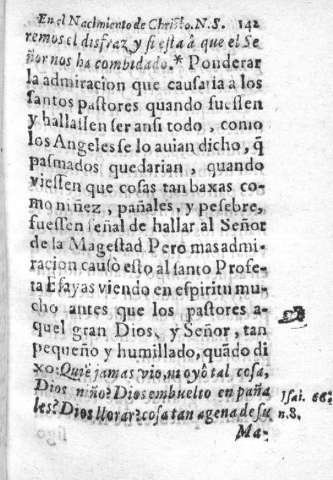 En el Nacimiento de Christo. N. S. 142
remos el disfraz, y fiesta à que el Se-
ñor nos ha combidado.* Ponderar
la admiracion que causaria a los
santos pastores quando fuessen
y hallassen ser ansi todo, como
los Angeles se lo auian dicho, q̃
pasmados quedarian, quando
viessen que cosas tan baxas co-
mo niñez, pañales, y pesebre,
fuessen señal de hallar al Señor
de la Magestad Pero mas admi-
racion causò esto al santo Profe-
ta Esayas viendo en espiritu mu-
cho antes que los pastores a-
quel gran Dios, y Señor, tan
pequeño y humillado, quãdo di
xo: Quiẽ jamas vio, ni oyò tal cosa,
Dios niño? Dios embuelto en paña
les? Dios llorar? cosa tan agena de su
Isai. 66:
n. 8.
Ma-